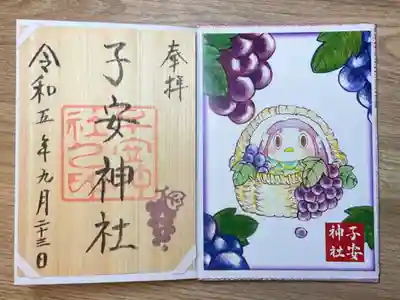 奉拝
子安神社
令和五年九月二十三日
子安神社之印
子安
神社